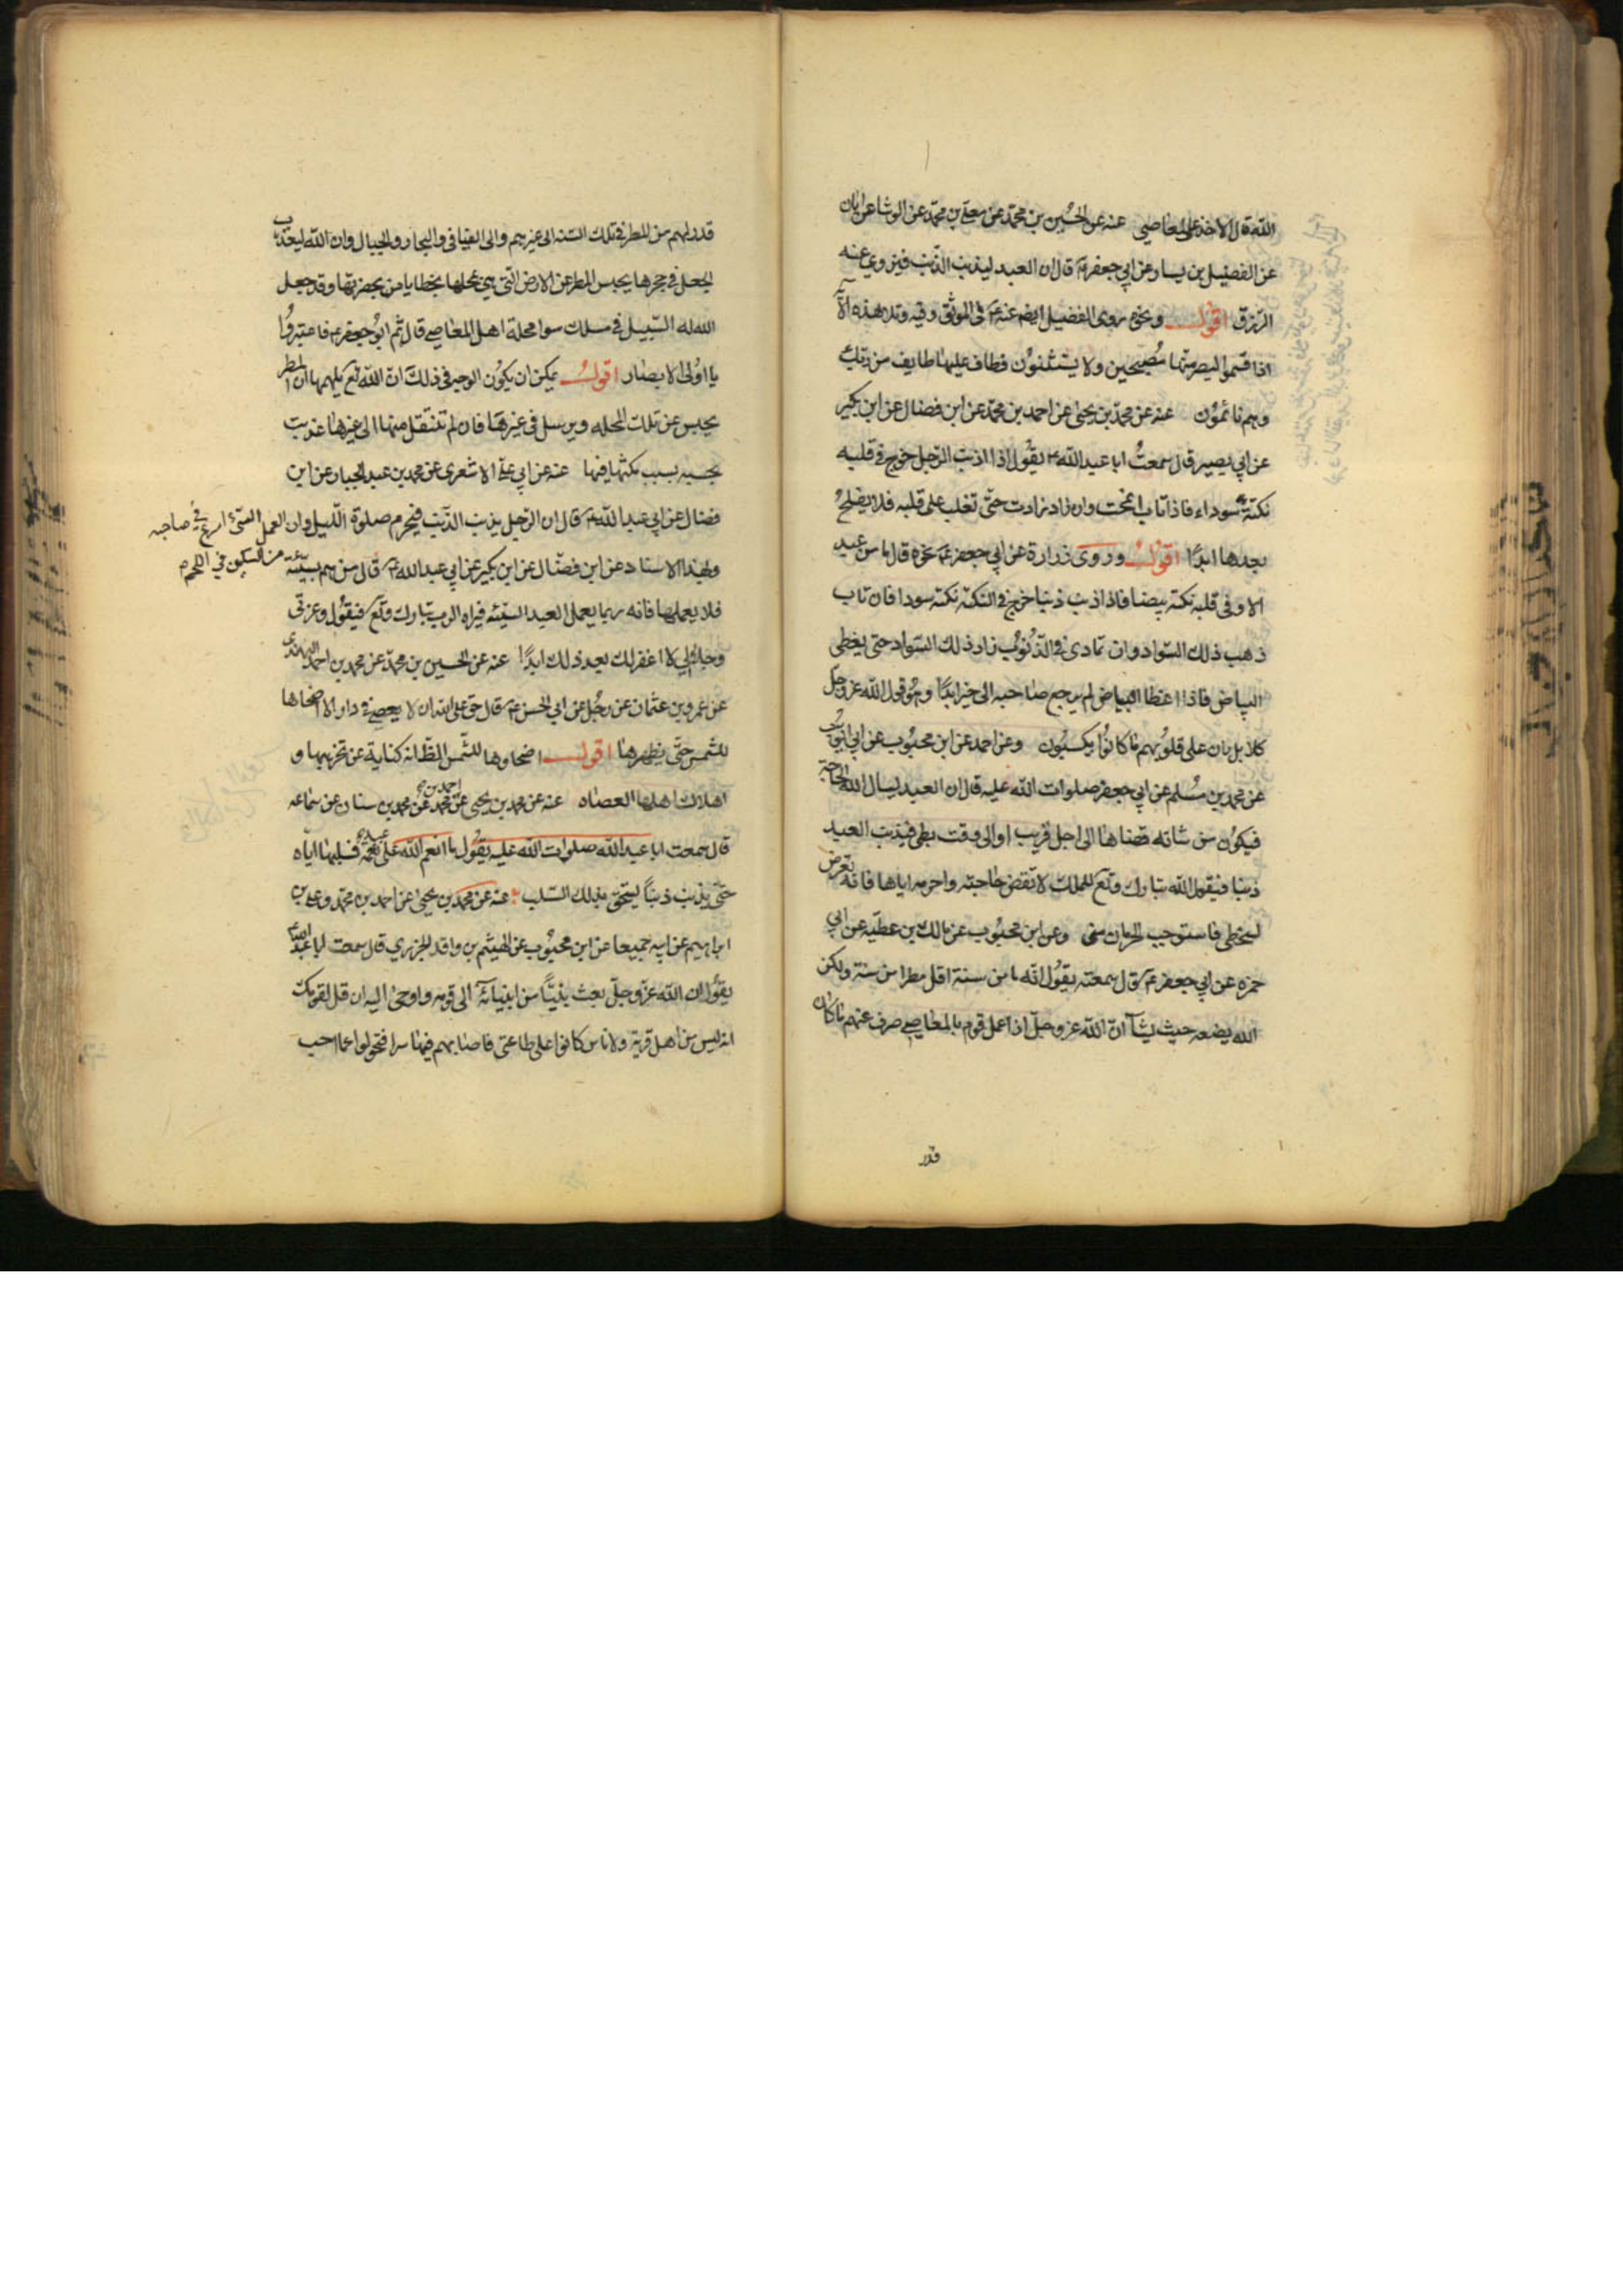 الله قال الاخذ على المعاصي عنه عن الحسين بن محمد عن معلى بن محمد عن الوشا عن ابان
عن الفضيل بن يسار عن ابي جعفر ع قال ان العبد ليذنب الذنب فيزوي عنه
الرزق اقول ونحوه روى الفضيل ايضا عنه ع في الموثق وفيه وتلا هذه الآ
اذا قسموا ليصرمنها مصبحين ولا يستثنون فطاف عليها طايف من ربك
وهم نائمون عنه عن محمد بن يحيى عن احمد بن محمد عن ابن فضال عن ابن بكير
عن ابي بصير قال سمعت ابا عبد الله ع يقول اذا اذنب الرجل خرج في قلبه
نكتة سوداء فاذا تاب انمحت وان زاد زادت حتى تغلب على قلبه فلا يفلح
بعدها ابدًا اقول وروى زرارة عن ابي جعفر ع نحوه قال ما من عبد
الا وفي قلبه نكتة بيضا فاذا اذنب ذنبا خرج في النكتة نكتة سودا فان تاب
ذهب ذلك السواد وان تمادى في الذنوب زاد ذلك السواد حتى يغطى
البياض فاذا اغطا البياض لم يرجع صاحبه الى خير ابدًا وهو قول الله عز وجل
كلا بل ران على قلوبهم ما كانوا يكسبون وعن احمد عن ابن محبوب عن ابي ايوب
عن محمد بن مسلم عن ابي جعفر صلوات الله عليه قال ان العبد ليسال الله الحاجة
فيكون من شانه قضاها الى اجل قريب او الى وقت بطي فيذنب العبد
ذنبا فيقول الله تبارك وتع للملك لا تقض حاجته واحرمه اياها فانه تعرض
لسخطي فاستوجب الحرمان مني وعن ابن محبوب عن مالك بن عطيه عن ابي
حمزه عن ابي جعفر ع قال سمعته يقول انه ما من سنة اقل مطرا من سنة ولكن
الله يضعه حيث يشآ ان الله عز وجل اذا عمل قوم بالمعاصي صرف عنهم ما كان
قدر
قدر لهم من المطر في تلك السنه الى غيرهم والى الفيافي والبحار والجبال وان الله ليعذب
الجعل في جحرها يحبس المطر عن الارض التي هي بمحلها بخطايا من بحضرتها وقد جعل
الله له السبيل في مسلك سوا محلة اهل المعاصي قال ثم قال ابو جعفر ع فاعتبروا
يا اولى الابصار اقول يمكن ان يكون الوجه في ذلك ان الله تع يلهمها ان المطر
يحبس عن تلك المحله ويرسل في غيرها فان لم تنتقل منها الى غيرها عذبت
بحبسه بسبب مكثها فيها عنه عن ابي علي الاشعري عن محمد بن عبد الجبار عن ابن
فضال عن ابي عبد الله ع قال ان الرجل يذنب الذنب فيحرم صلوة الليل وان العمل السيئ اسرع في صاحبه
من السكين في اللحم
وبهذا الاسناد عن ابن فضال عن ابن بكير عن ابي عبد الله ع قال من هم بسيئة
فلا يعملها فانه ربما يعمل العبد السيئه فيراه الرب تبارك وتع فيقول وعزتي
وجلالي لا اغفر لك بعد ذلك ابدًا عنه عن الحسين بن محمد عن محمد بن احمد النهدي
عن عمرو بن عثمان عن رجل عن ابي الحسن ع قال حق على الله ان لا يعصى في دار الا اضحاها
للشمس حتى يطهرها اقول اضحاوها للشمس الظ انه كناية عن تخريبها و
اهلاك اهلها العصاه عنه عن محمد بن يحيى عن احمد بن محمد عن محمد بن سنان عن سماعه
قال سمعت ابا عبد الله صلوات الله عليه يقول ما انعم الله على عبد نعمة فسلبها اياه
حتى يذنب ذنباً يستحق بذلك السلب عنه عن محمد بن يحيى عن احمد بن محمد وعلي بن
ابراهيم عن ابيه جميعا عن ابن محبوب عن الهيثم بن واقد الجزري قال سمعت ابا عبد الله
يقول ان الله عز وجل بعث نبيًّا من انبيائه الى قومه واوحى اليه ان قل لقومك
انه ليس من اهل قرية ولا ناس كانوا على طاعتي فاصابهم فيها سرا فتحولوا عما احب